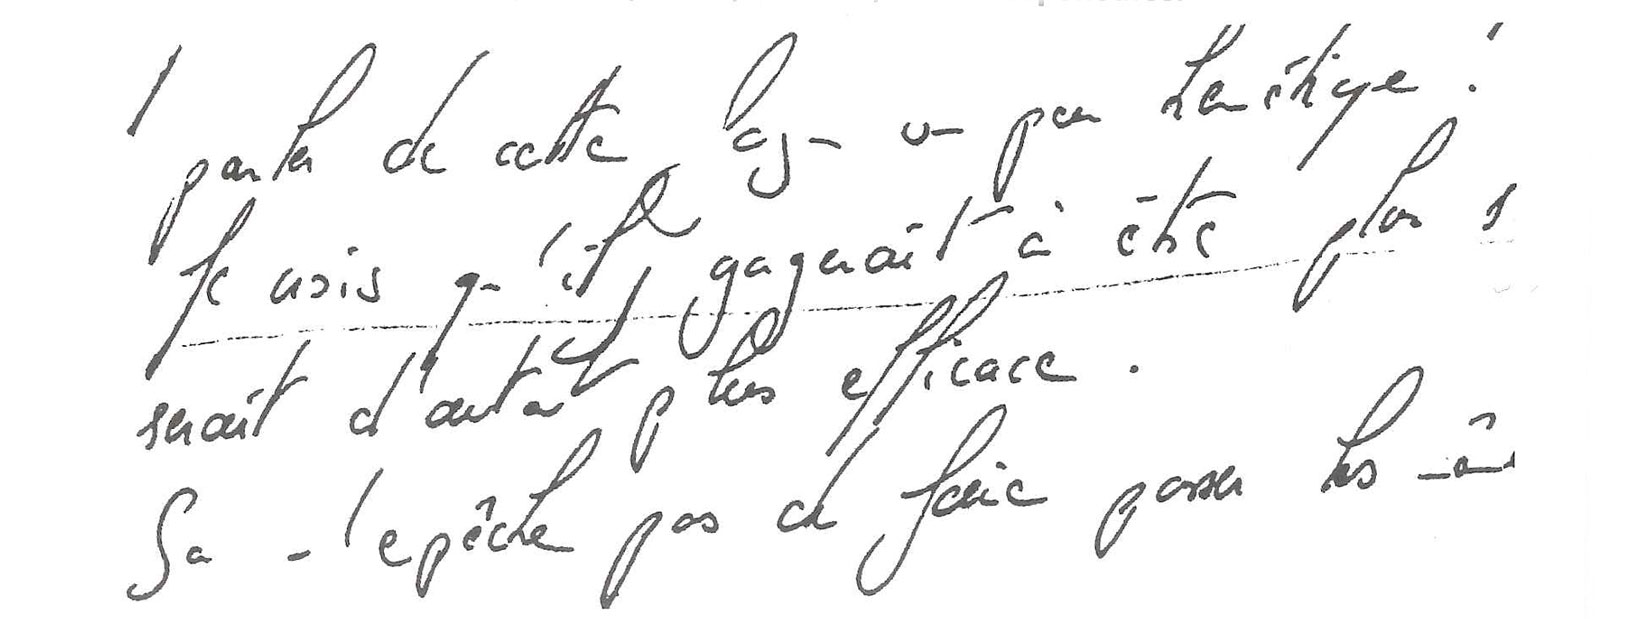 parler de cette façon un peu hérétique !
Je crois qu'il gagnerait à être plus
serait d'autant plus efficace.
Sa n'epêche pas de faire passer les